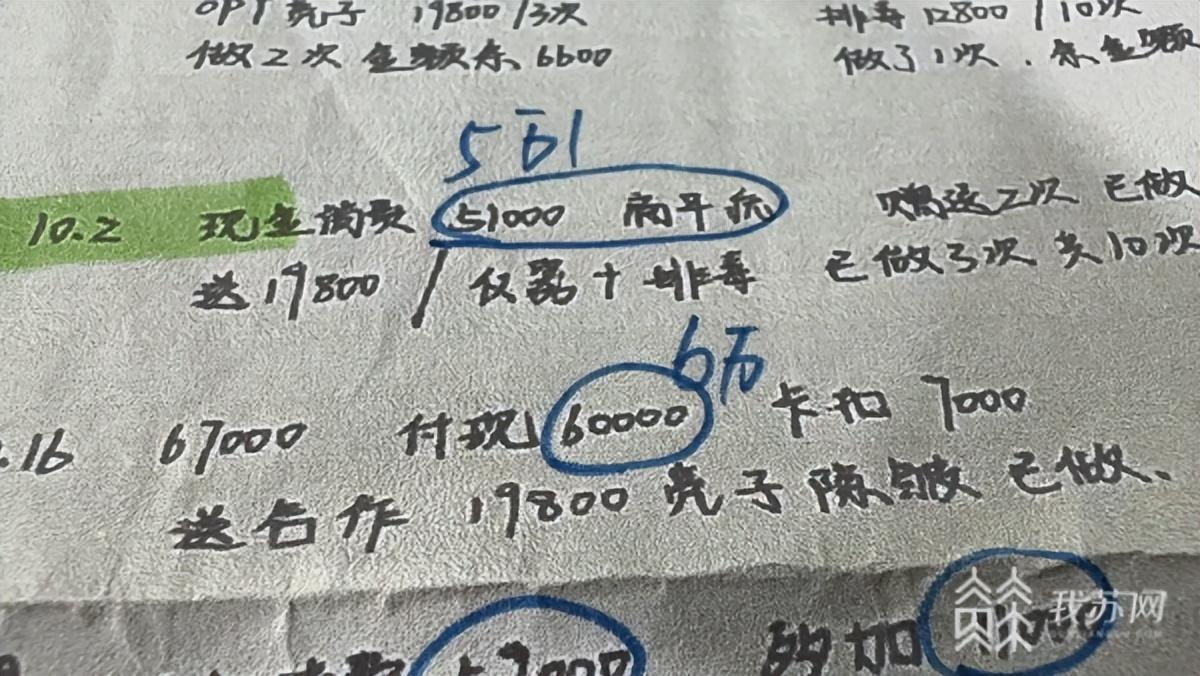 OPT 壳子 19800/3次 排毒 12800/10次
做2次 金额余 6600 做了1次. 余金额
5万1
10.2 现金 51000 赠送2次 已做
送 19800 / 仪器+排毒 已做了3次 共10次
6万
.16 67000 付现 60000 卡扣 7000
送合作 19800 壳子 除皱 已做.
我苏网